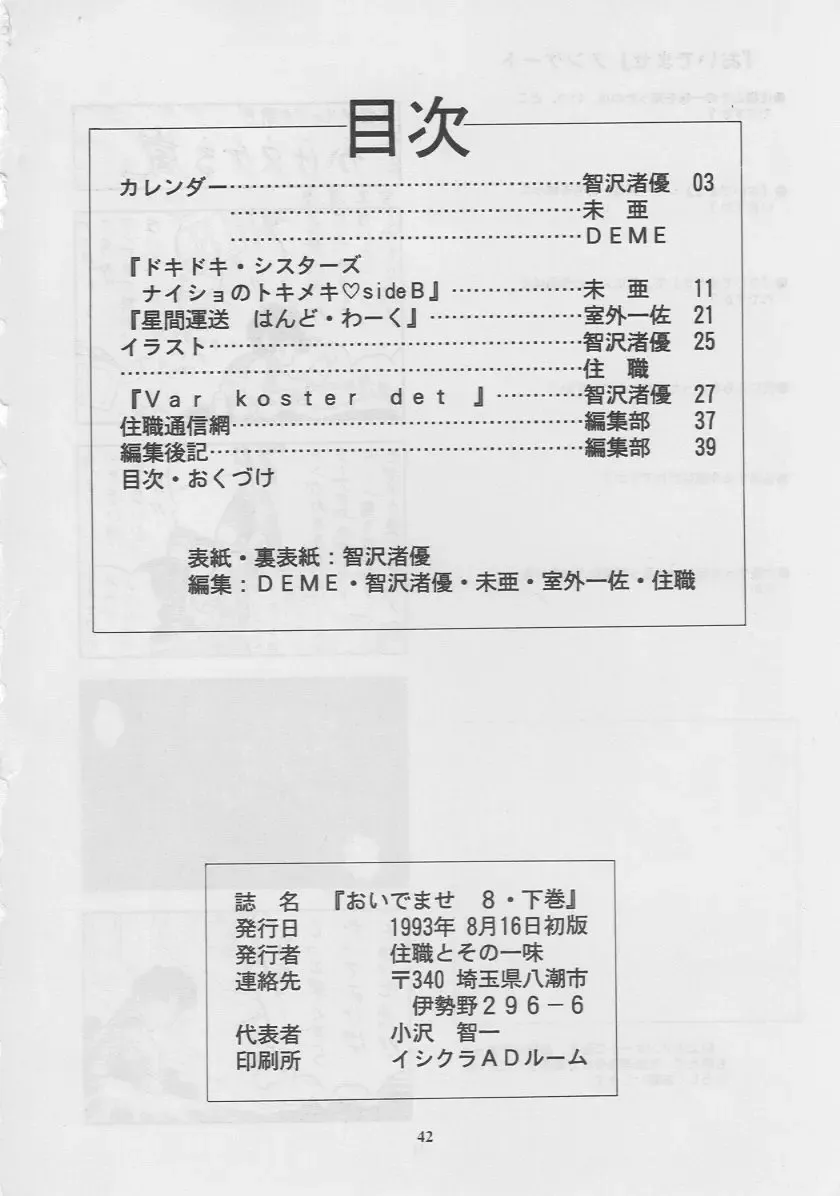 目次
カレンダー……………………………………………智沢渚優　03
……………………………………………未　亜
……………………………………………ＤＥＭＥ
『ドキドキ・シスターズ
ナイショのトキメキ♡sideＢ』………………未　亜　11
『星間運送　はんど・わーく』…………………室外一佐　21
イラスト………………………………………………智沢渚優　25
…………………………………………………………住　職
『Ｖａｒ　ｋｏｓｔｅｒ　ｄｅｔ　』…………智沢渚優　27
住職通信網……………………………………………編集部　37
編集後記………………………………………………編集部　39
目次・おくづけ
表紙・裏表紙：智沢渚優
編集：ＤＥＭＥ・智沢渚優・未亜・室外一佐・住職
誌　名　『おいでませ　８・下巻』
発行日　1993年 8月16日初版
発行者　住職とその一味
連絡先　〒340 埼玉県八潮市
伊勢野２９６－６
代表者　小沢　智一
印刷所　イシクラＡＤルーム
42